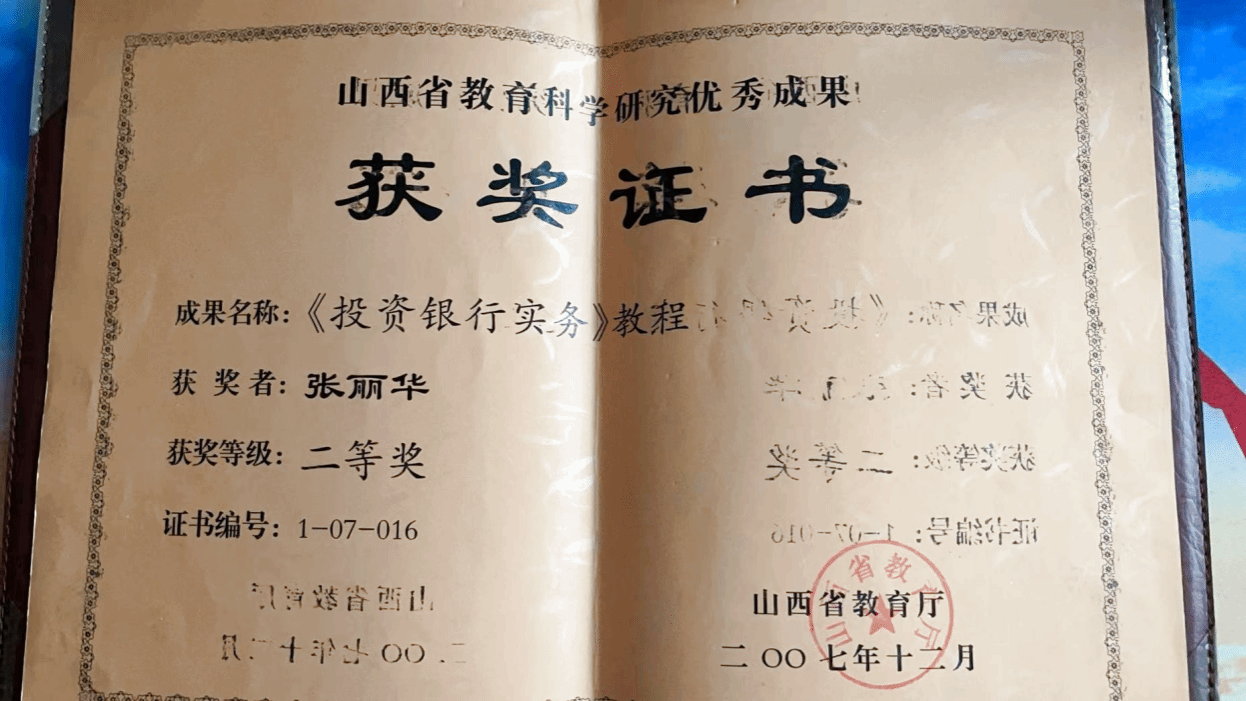 山西省教育科学研究优秀成果
获奖证书
成果名称：《投资银行实务》教程
获奖者：张丽华
获奖等级：二等奖
证书编号：1-07-016
山西省教育厅
山西省教育厅
二〇〇七年十二月